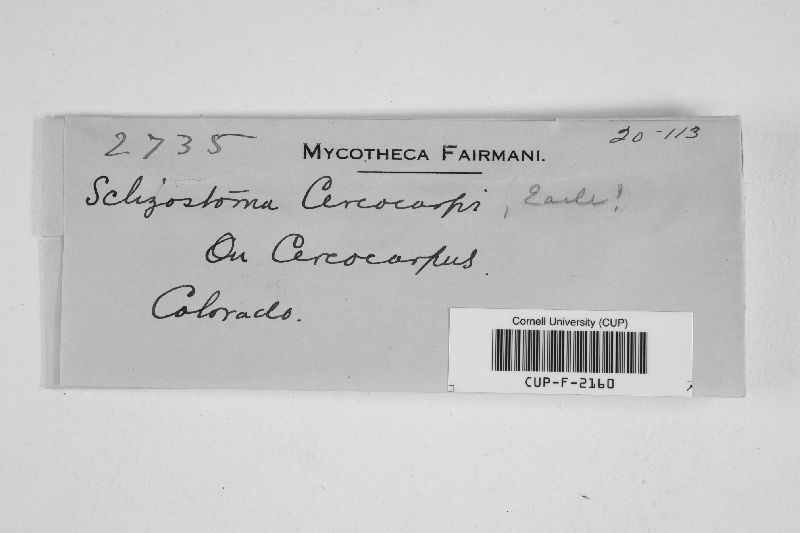 2735
20-113
MYCOTHECA FAIRMANI.
Schizostoma Cercocarpi, Earle!
On Cercocarpus.
Colorado.
Cornell University (CUP)
CUP-F-2160